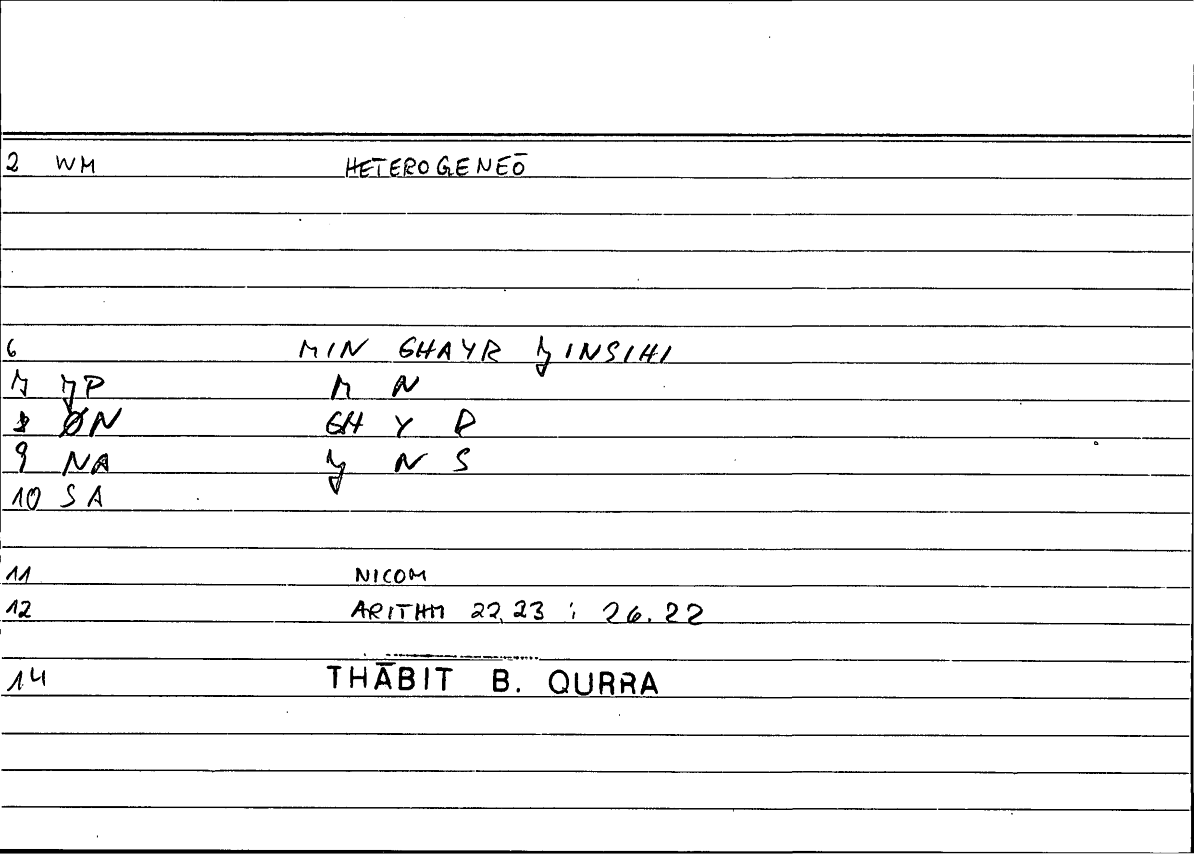 2 WM HETEROGENEŌ
6 MIN GHAYR JINSIHI
7 JP M N
8 ØN GH Y R
9 NA J N S
10 SA
11 NICOM
12 ARITHM 22,23 ; 26.22
14 THĀBIT B. QURRA